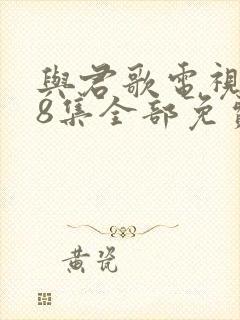 與君歌電視
8集全部免費
黃瓷